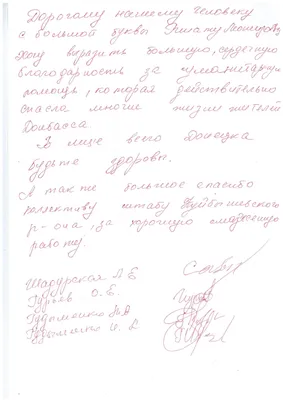 Дорогому нашему Человеку
с большой буквы Ринату Леонидовичу
Хочу выразить большую, сердечную
благодарность за гуманитарную
помощь, которая действительно
спасла многие жизни жителей
Донбасса.
В лице всего Донецка
будьте здоровы.
А так же большое спасибо
коллективу штабу Куйбышевского
р-она, за хорошую слаженную
работу.
Гуров О. Б.